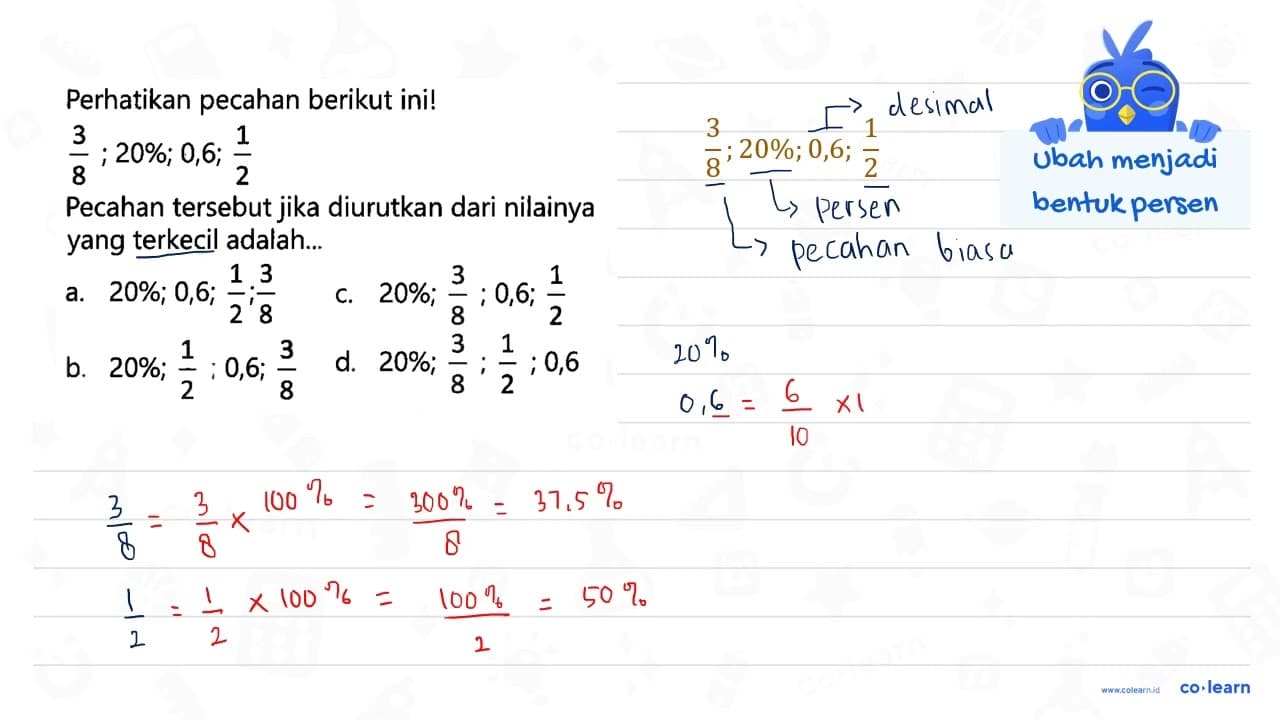 Perhatikan pecahan berikut ini!
3/8 ; 20%; 0,6; 1/2
Pecahan tersebut jika diurutkan dari nilainya
yang terkecil adalah...
a. 20%; 0,6; 1/2; 3/8
c. 20%; 3/8 ; 0,6; 1/2
b. 20%; 1/2 ; 0,6; 3/8
d. 20%; 3/8 ; 1/2 ; 0,6
desimal
3/8; 20%; 0,6; 1/2
persen
pecahan biasa
Ubah menjadi
bentuk persen
20%
0,6 = 6/10 x1
3/8 = 3/8 x 100% = 300%/8 = 37,5%
1/2 = 1/2 x 100% = 100%/2 = 50%
www.colearn.id co·learn